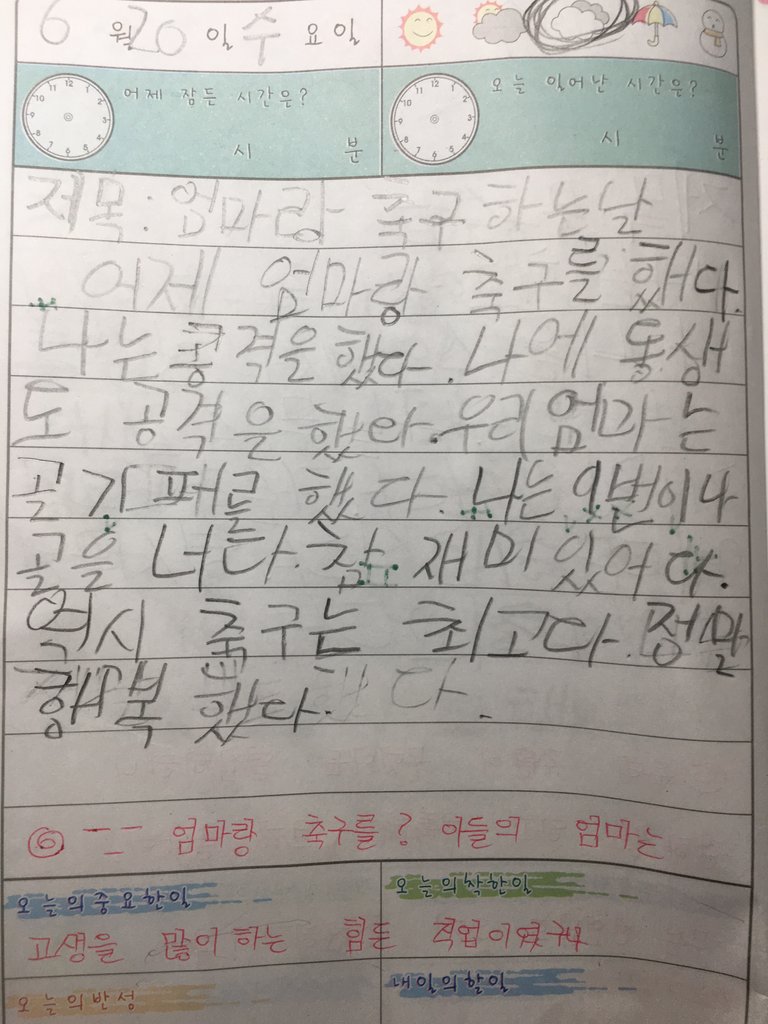 6 월 20 일 수 요일
어제 잠든 시간은?
시 분
오늘 일어난 시간은?
시 분
제목: 엄마랑 축구 하는날
어제 엄마랑 축구를 했다.
나는 공격을 했다. 나에 동생
도 공격을 했다. 우리 엄마는
골기퍼를 했다. 나는 9번이나
골을 너다. 참 재미있어다.
역시 축구는 최고다. 정말
행복했다.
엄마랑 축구를? 아들의 엄마는
오늘의중요한일
오늘의착한일
고생을 많이 하는 힘든 직업이였구나
오늘의반성
내일의할일